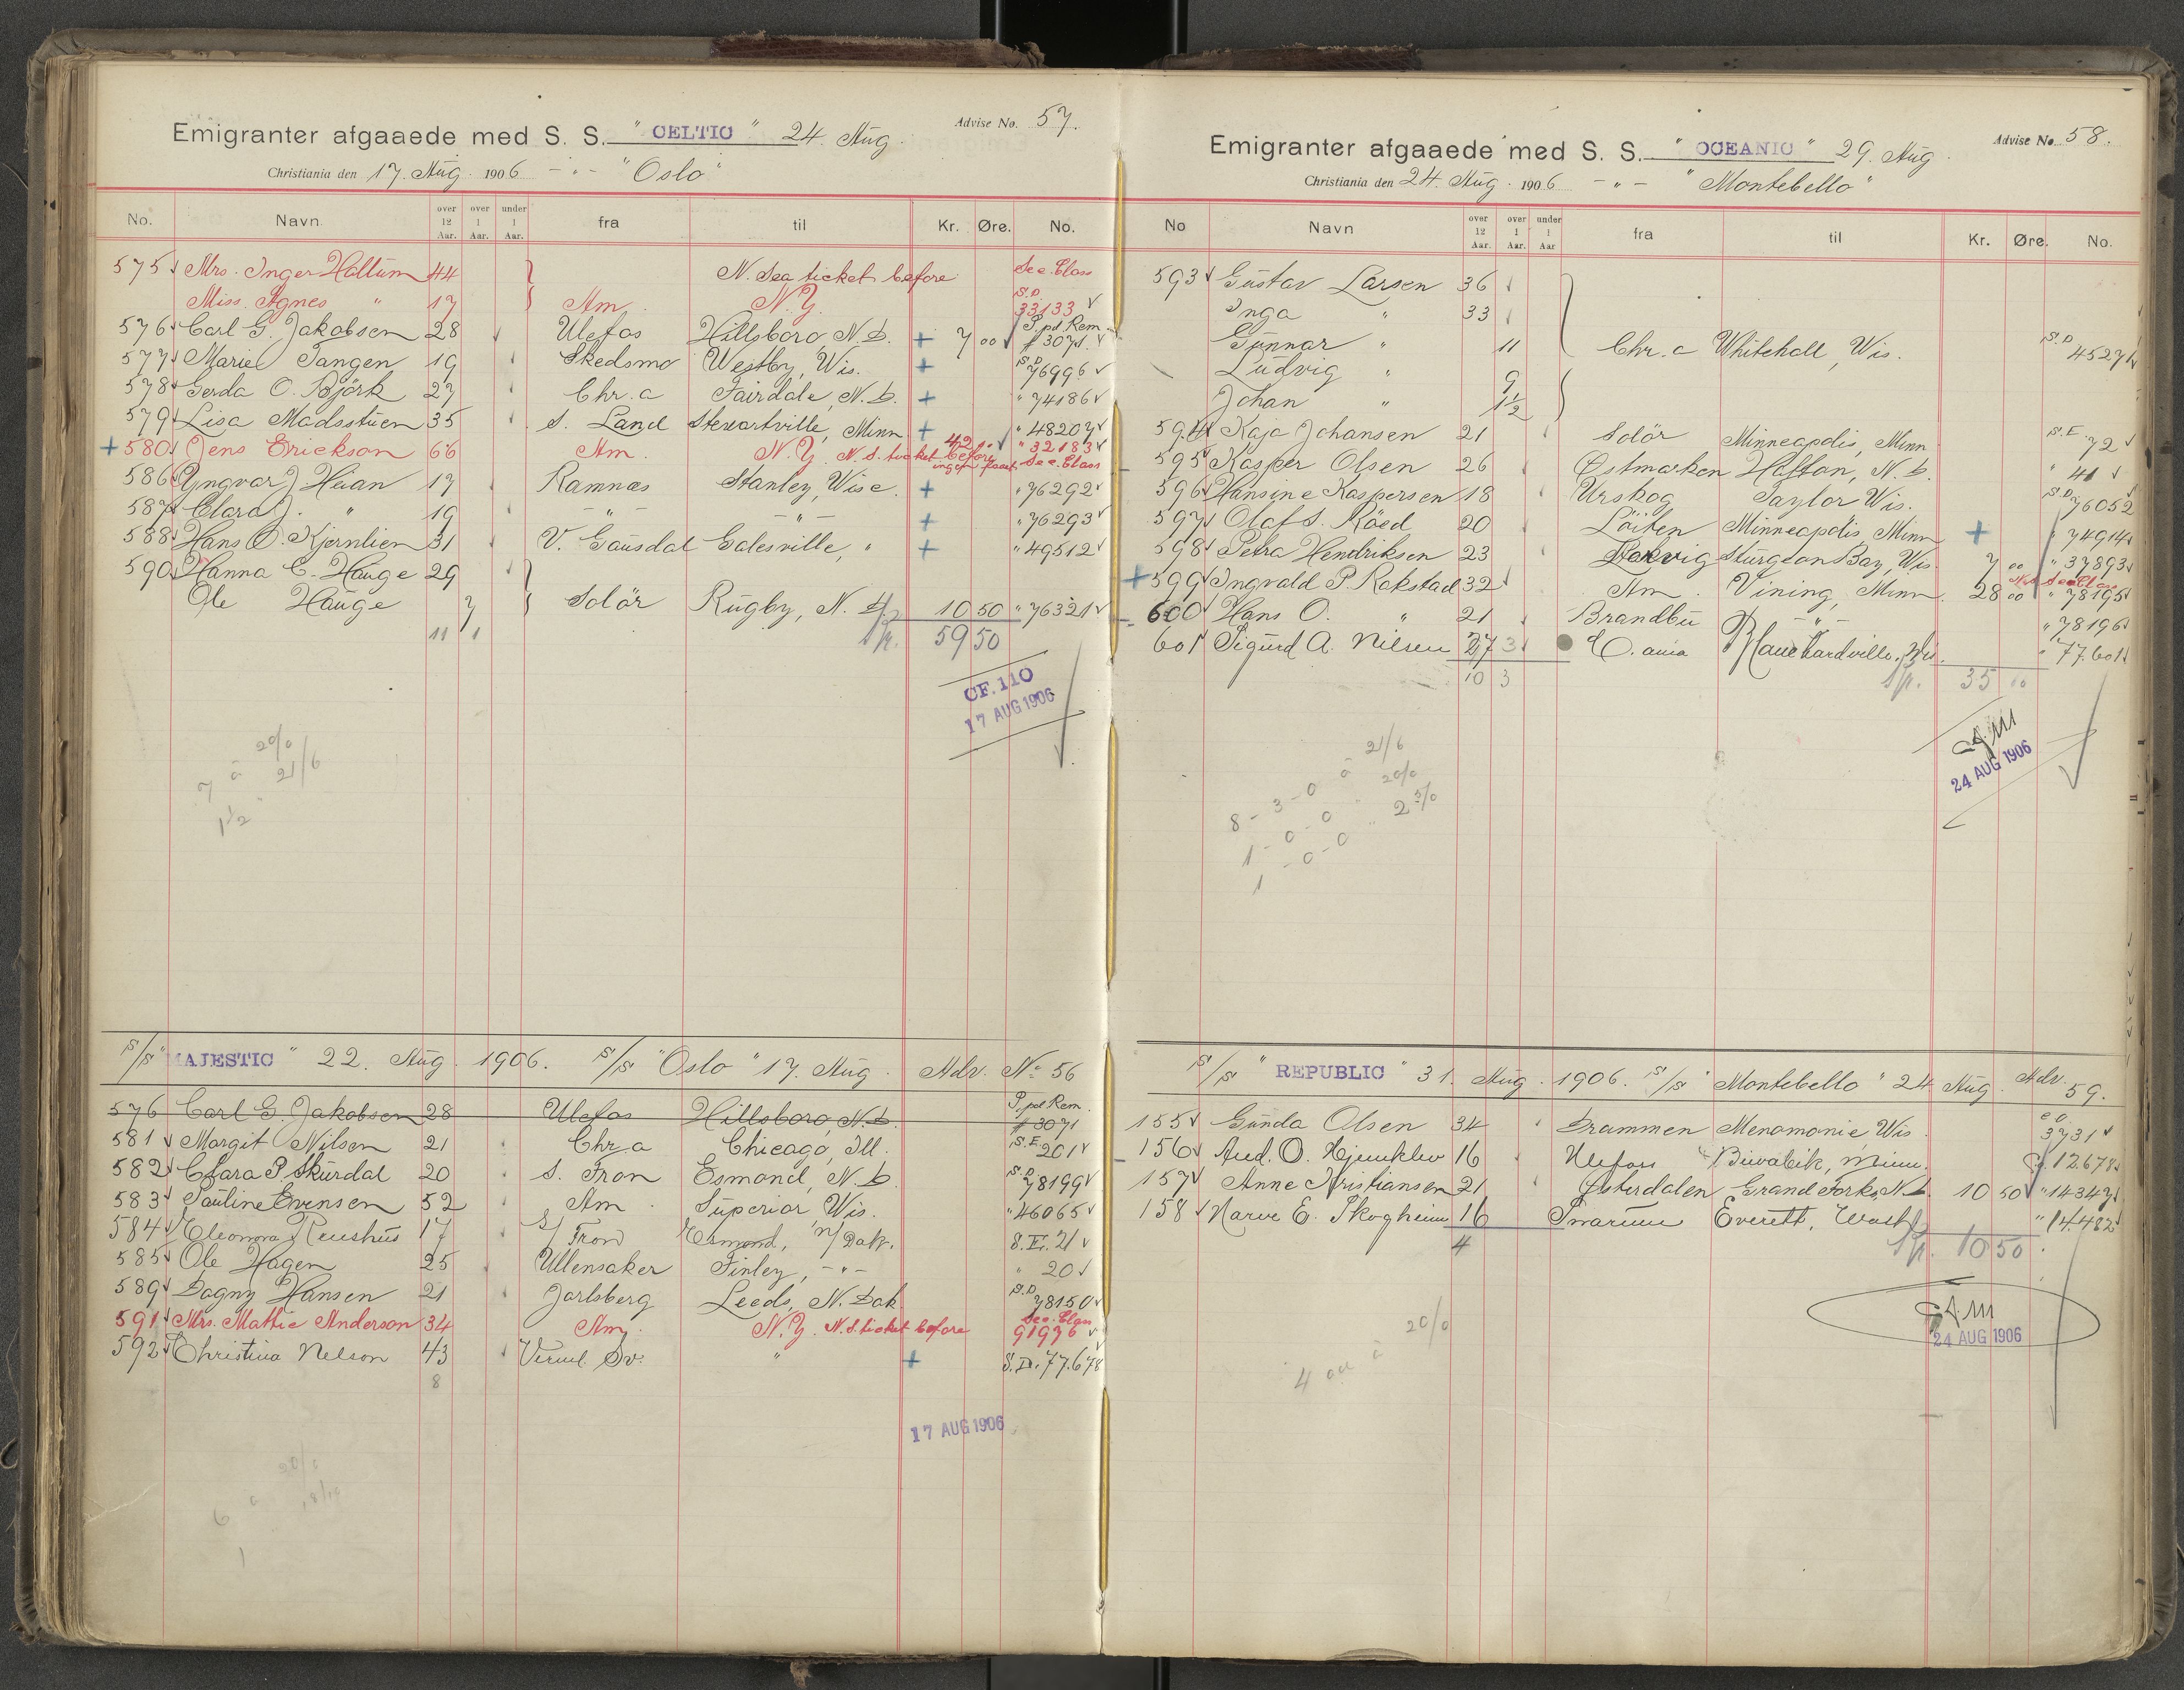 Advise No. 57.
Emigranter afgaaede med S. S. " CELTIC " 24 Aug.
Christiania den 17. Aug. 1906 - " - "Oslo"
No. Navn. over 12 Aar. over 1 Aar. under 1 Aar. fra til Kr. Øre. No.
575 Mrs. Inger Hallum 44 N. Sea ticket before Sec. Class
Miss. Agnes " 17 Am. N.Y. S.D. 33133
576 Carl G. Jakobsen 28 Ulefos Hillsboro, N.D. + 7 00 P.pd.Rem. # 3071.
577 Marie Tangen 19 Skedsmo Westby, Wis. + S.D. 76996
578 Gerda O. Björk 27 Chr.a Fairdale, N.D. + " 74186
579 Lisa Madsstuen 35 S. Land Stewartville, Minn + " 48207
+ 580 Jens Erickson 66 Am. N.Y. N.S. ticket before 42 " 32183 Sec. Class
586 Yngvar J Haan 17 Ramnæs Stanley, Wisc. + " 76292
587 Clara J. " 19 - " - - " - + " 76293
588 Hans O. Kjernlien 31 V. Gausdal Galesville, " + " 49512
590 Hanna C. Hauge 29
Ole Hauge 7 Solör Rugby, N.D. 10 50 " 76321
11 1 59 50
CF. 110
17 AUG 1906
20/0
7 à 21/6
1 1/2 "
S/S "MAJESTIC " 22. Aug. 1906. S/S "Oslo" 17. Aug. Adv. No 56
576 Carl G. Jakobsen 28 Ulefos Hillsboro, N.D. P.pd Rem. # 3071
581 Margit Nilsen 21 Chr.a Chicago, Ill. S.E. 201
582 Clara P. Skurdal 20 S. Fron Esmond, N.D. S.D. 78199
583 Pauline Evensen 52 Am. Superior Wis. " 46065
584 Eleonora Ruushus 17 S/ Fron Esmond, N/Dak. S.E. 21
585 Ole Hagen 25 Ullensaker Finley, - " - " 20
589 Dagny Hansen 21 Jarlsberg Leeds, N. Dak. S.D. 78150
591 Mrs. Mathie Anderson 34 Am. N.Y. N.S. ticket before Sec. Class 91976
592 Christina Nelson 43 Verml. Sv. " + S.D. 77.678
8
17 AUG 1906
Advise No. 58.
Emigranter afgaaede med S. S. " OCEANIC " 29. Aug.
Christiania den 24. Aug. 1906 - " - "Montebello"
No Navn over 12 Aar. over 1 Aar. under 1 Aar fra til Kr. Øre. No.
593 Gustav Larsen 36
Inga " 33
Gunnar " 11 Chr.a Whitehall, Wis. S.D. 45271
Ludvig " 9
Johan " 1 1/2
594 Kaja Johansen 21 Solör Minneapolis, Minn S.E. 72
595 Kasper Olsen 26 Østmarken Hatton, N.D. " 41
596 Hansine Kaspersen 18 Urskog Taylor Wis. S.D. 76052
597 Olaf S. Röed 20 Löiten Minneapolis, Minn + " 74914
598 Petra Hendriksen 23 Sturgeon Bay, Wis. 7 00 " 37893
+ 599 Ingvald P. Rokstad 32 Am. Vining, Minn. 28 00 " 78195
600 Hans O. " 21 Brandbu - " - " 78196
601 Sigurd A. Nilsen 27 Blanchardville, Wis. " 77.601
10 3 35 00
24 AUG 1906
21/6
8 - 3 - 0 à 20/0
1 - 0 - 0 " 2
1 - 0 - 0
S/S " REPUBLIC " 31. Aug. 1906. S/S "Montebello" 24 Aug. Adv. 59.
155 Gunda Olsen 34 Drammen Menomonie, Wis. 3731
156 Aud. O. Hjuuklev 16 Ulefoss Biwabik, Minn. 12.678
157 Anne Kristiansen 21 Østerdalen Grand Forks, N.D. 10 50 " 14347
158 Narve E. Skogheim 16 Snarum Everett, Wash " 14.482
4 10 50
24 AUG 1906
4 à 20/0